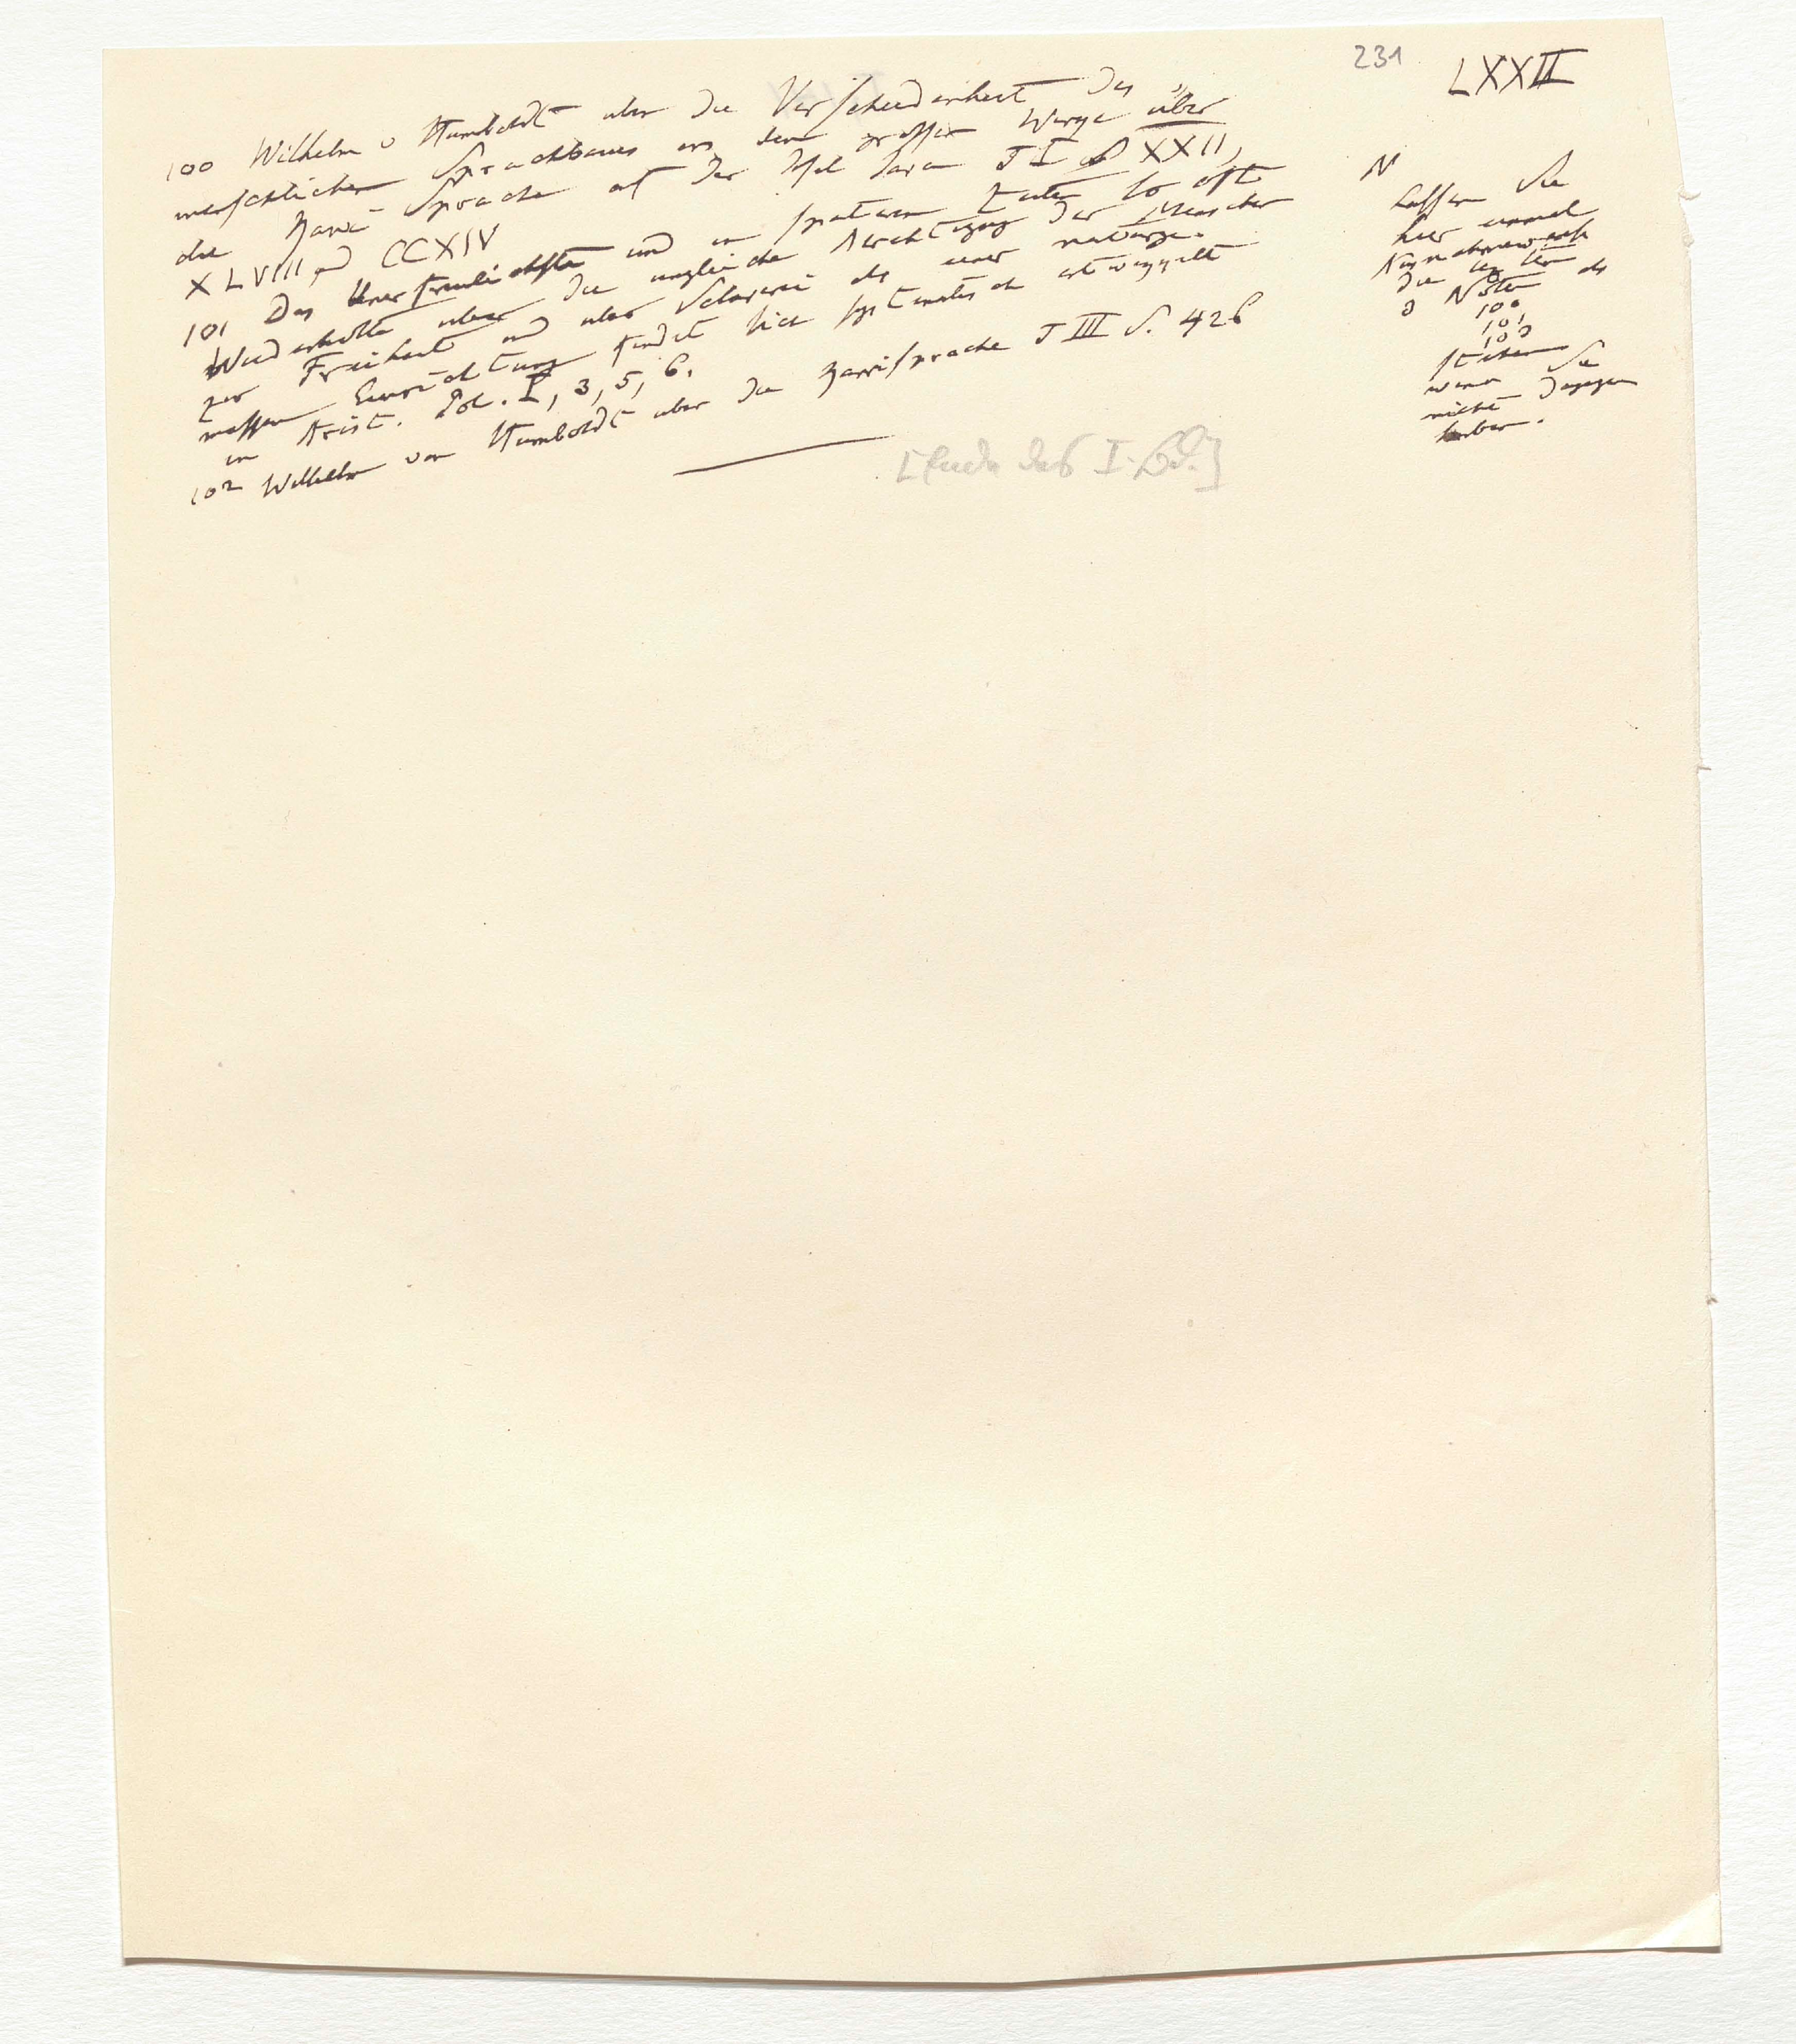 231
LXXII
100 Wilhelm v Humboldt uber die Verschiedenheit des
menschlichen Sprachbaues in dem grossen Werye über
die Kawi Sprache auf der Insel Java T I S XXII,
XLVIII und CCXIV
101 Das Unerfreulichste und in spateren Zeiten so oft
Wiederholte uber die ungleiche Berechtigung der Menschen
zur Freiheit und uber Sclaverei als einer naturge-
massen Einrichtung findet sich systematisch entwiggelt
in Arist. Pol. I, 3, 5, 6.
102 Wilhelm von Humboldt uber die Kawisprache T III S. 426
[Ende des I. Bd.]
N
Lassen Sie
hier einmal
die
3 Noten als
100
101
102
stehen
wenn Sie
nichts dagegen
haben.